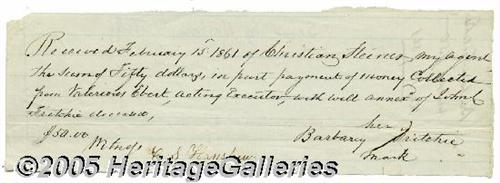 Received February 15 1861 of Christian Steiner my agent
the sum of Fifty dollars, in part payment of money Collected
from Valerius Ebert, Acting Executor with will annexd of John C
Fritchie deceased,
$50.00
her
Barbary Fritchie
mark
Witness
Hanshew
©2005 HeritageGalleries